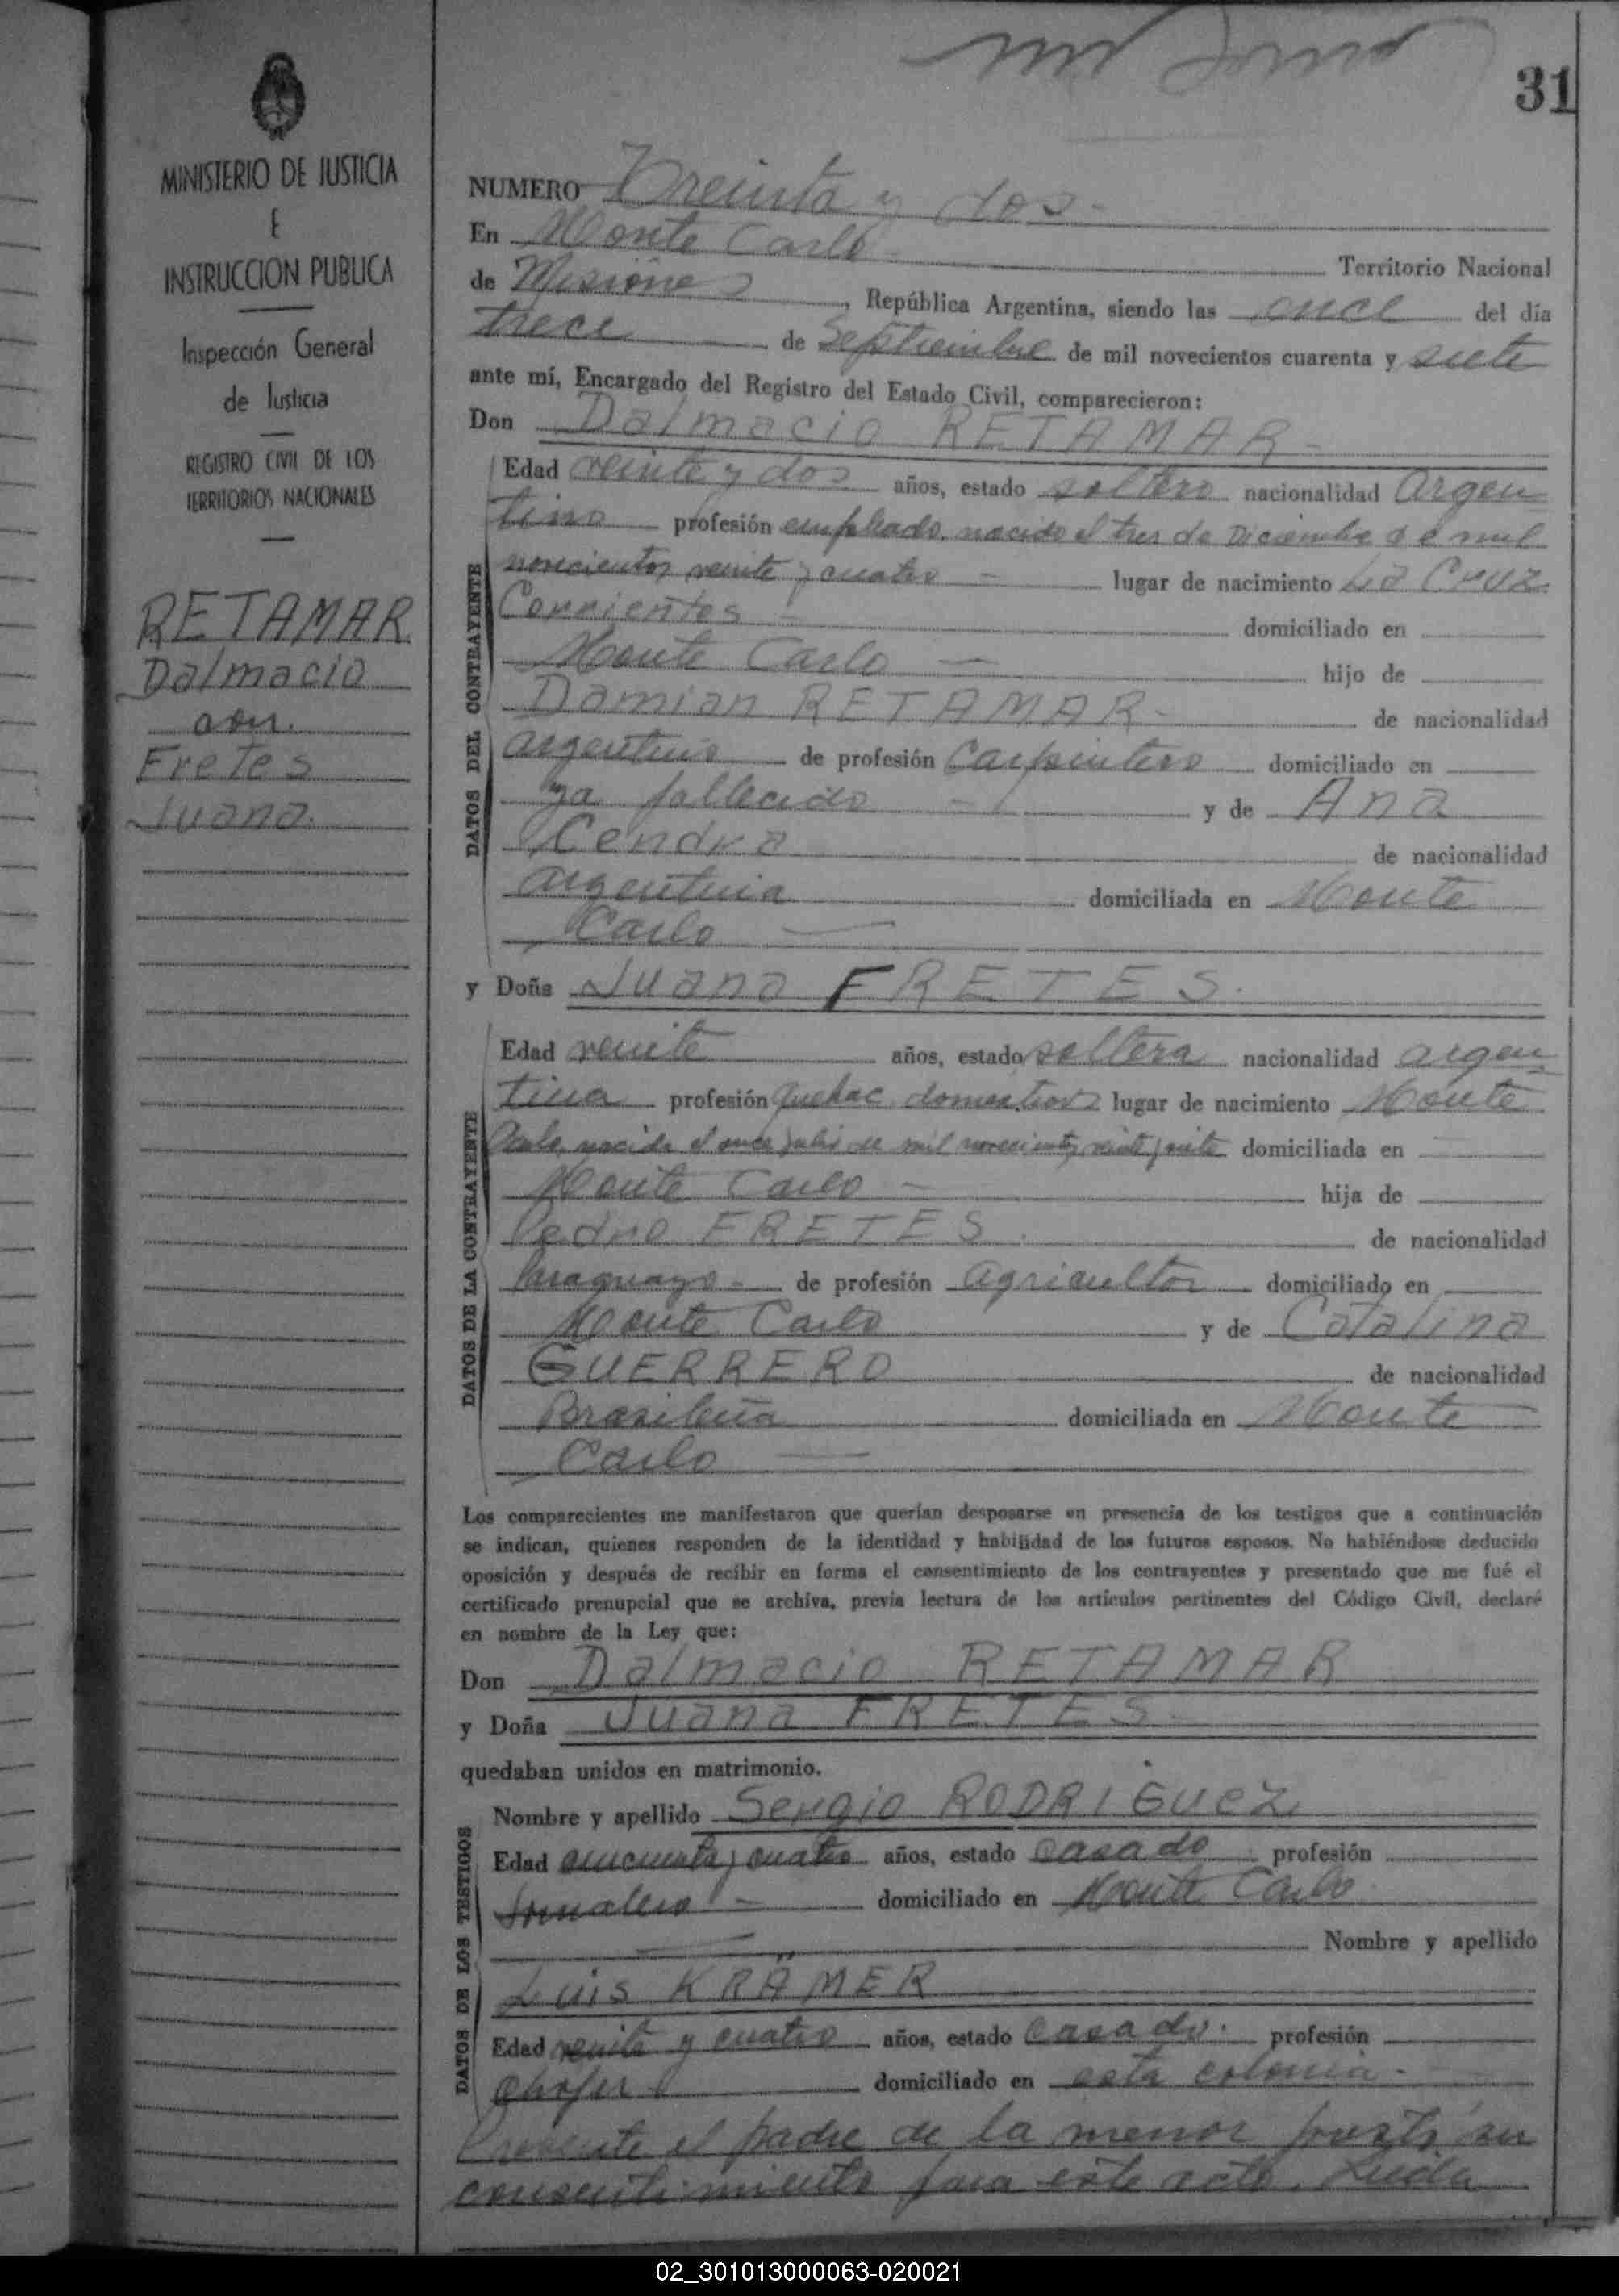 31
MINISTERIO DE JUSTICIA
E
INSTRUCCION PUBLICA
Inspección General
de Justicia
REGISTRO CIVIL DE LOS
TERRITORIOS NACIONALES
RETAMAR
Dalmacio
con
Fretes
Juana.
NUMERO Treinta y dos-
En Monte Carlo Territorio Nacional
de Misiones, República Argentina, siendo las once del día
trece de Septiembre de mil novecientos cuarenta y siete
ante mí, Encargado del Registro del Estado Civil, comparecieron:
Don Dalmacio RETAMAR-
DATOS DEL CONTRAYENTE
Edad veinte y dos años, estado soltero nacionalidad Argen
tino profesión empleado. nacido el tres de Diciembre de mil
novecientos veinte y cuatro - lugar de nacimiento La Cruz
Corrientes - domiciliado en
Monte Carlo - hijo de
Damian RETAMAR- de nacionalidad
argentino de profesión Carpintero domiciliado en
ya fallecido - y de Ana
Cendra de nacionalidad
argentina domiciliada en Monte
Carlo -
y Doña Juana FRETES.
DATOS DE LA CONTRAYENTE
Edad veinte años, estado soltera nacionalidad argen-
tina profesión Quehac. domesticos lugar de nacimiento Monte
Carlo, nacida el once julio de mil novecientos veinte y siete domiciliada en
Monte Carlo - hija de
Pedro FRETES. de nacionalidad
Paraguayo- de profesión agricultor domiciliado en
Monte Carlo y de Catalina
GUERRERO de nacionalidad
Brasileña domiciliada en Monte
Carlo -
Los comparecientes me manifestaron que querían desposarse en presencia de los testigos que a continuación
se indican, quienes responden de la identidad y habilidad de los futuros esposos. No habiéndose deducido
oposición y después de recibir en forma el consentimiento de los contrayentes y presentado que me fué el
certificado prenupcial que se archiva, previa lectura de los artículos pertinentes del Código Civil, declaré
en nombre de la Ley que:
Don Dalmacio RETAMAR
y Doña Juana FRETES-
quedaban unidos en matrimonio.
DATOS DE LOS TESTIGOS
Nombre y apellido Sergio RODRIGUEZ
Edad cincuenta y cuatro años, estado casado profesión
Jornalero - domiciliado en Monte Carlo.
Nombre y apellido
Luis KRÄMER
Edad veinte y cuatro años, estado Casado. profesión
Chofer domiciliado en esta colonia-
Presente el padre de la menor prestó su
consentimiento para este acto. Leida
02_301013000063-020021